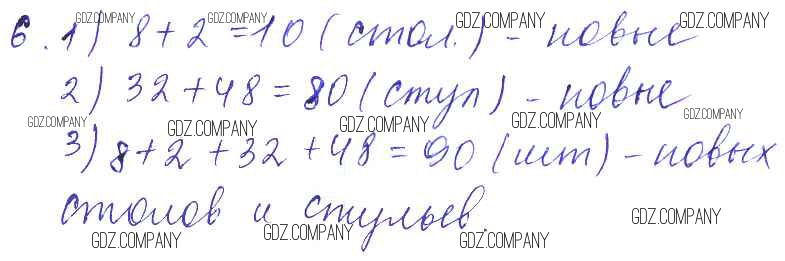 6. 1) 8 + 2 = 10 (стол.) - новые
2) 32 + 48 = 80 (стул) - новые
3) 8 + 2 + 32 + 48 = 90 (шт) - новых
столов и стульев.
GDZ.COMPANY GDZ.COMPANY GDZ.COMPANY GDZ.COMPANY
GDZ.COMPANY GDZ.COMPANY GDZ.COMPANY GDZ.COMPANY GDZ.COMPANY
GDZ.COMPANY GDZ.COMPANY GDZ.COMPANY GDZ.COMPANY